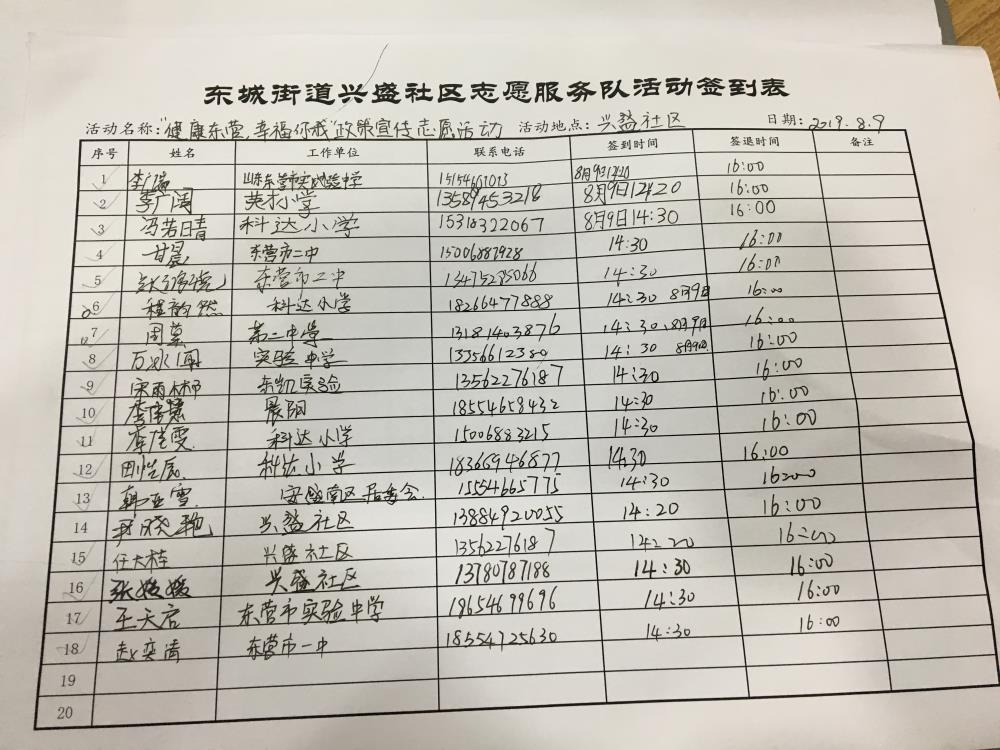 东城街道兴盛社区志愿服务队活动签到表
活动名称:"健康东营,幸福你我"政策宣传志愿活动 活动地点:兴盛社区 日期:2019.8.9
序号 姓名 工作单位 联系电话 签到时间 签退时间 备注
1 山东东营市实验中学 15154601013 8月9日 16:00
2 李广阔 英才小学 13589453218 8月9日 16:00
3 冯若日青 科达小学 15316322067 8月9日14:30 16:00
4 甘晨 东营市二中 15006887928 14:30 16:00
5 东营市二中 14:30 16:00
6 程韵然 科达小学 18266477888 14:30 8月9日 16:00
7 周 第二中学 13181403876 14:30 8月9日 16:00
8 万 实验中学 13356612380 14:30 8月9日 16:00
9 宋雨 东凯实验 13562276187 14:30 16:00
10 李 晨阳 18554658432 14:30 16:00
11 李 雯 科达小学 15006883215 14:30 16:00
12 田 科达小学 18366946877 14:30 16:00
13 韩亚雪 南区居委会 15554665775 14:30 16:00
14 尹晓艳 兴盛社区 13884920055 14:20 16:00
15 任大桂 兴盛社区 13562276187 14:20 16:00
16 张媛媛 兴盛社区 13780787188 14:30 16:00
17 王天启 东营市实验中学 18654699696 14:30 16:00
18 赵奕清 东营市一中 18554725630 14:30 16:00
19
20